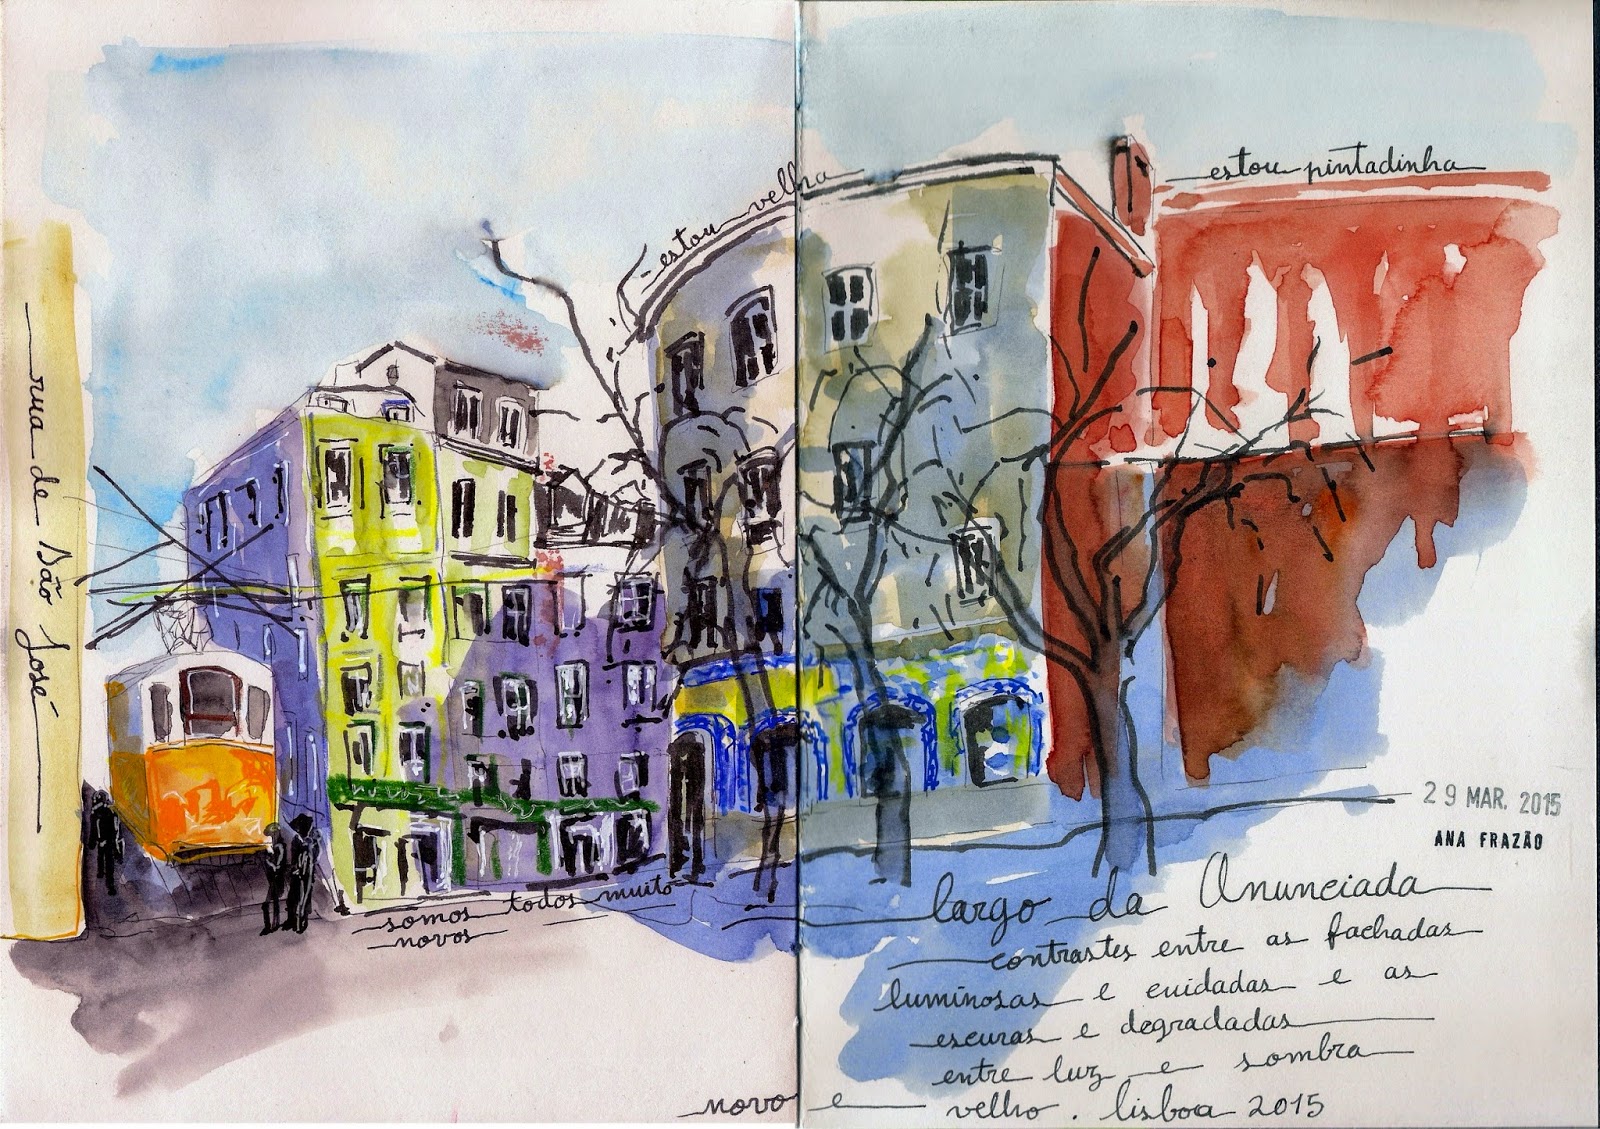 rua de São José
estou velha
estou pintadinha
somos todos muito
novos
29 MAR. 2015
ANA FRAZÃO
largo da Anunciada
contrastes entre as fachadas
luminosas e cuidadas e as
escuras e degradadas
entre luz e sombra
novo e velho. lisboa 2015